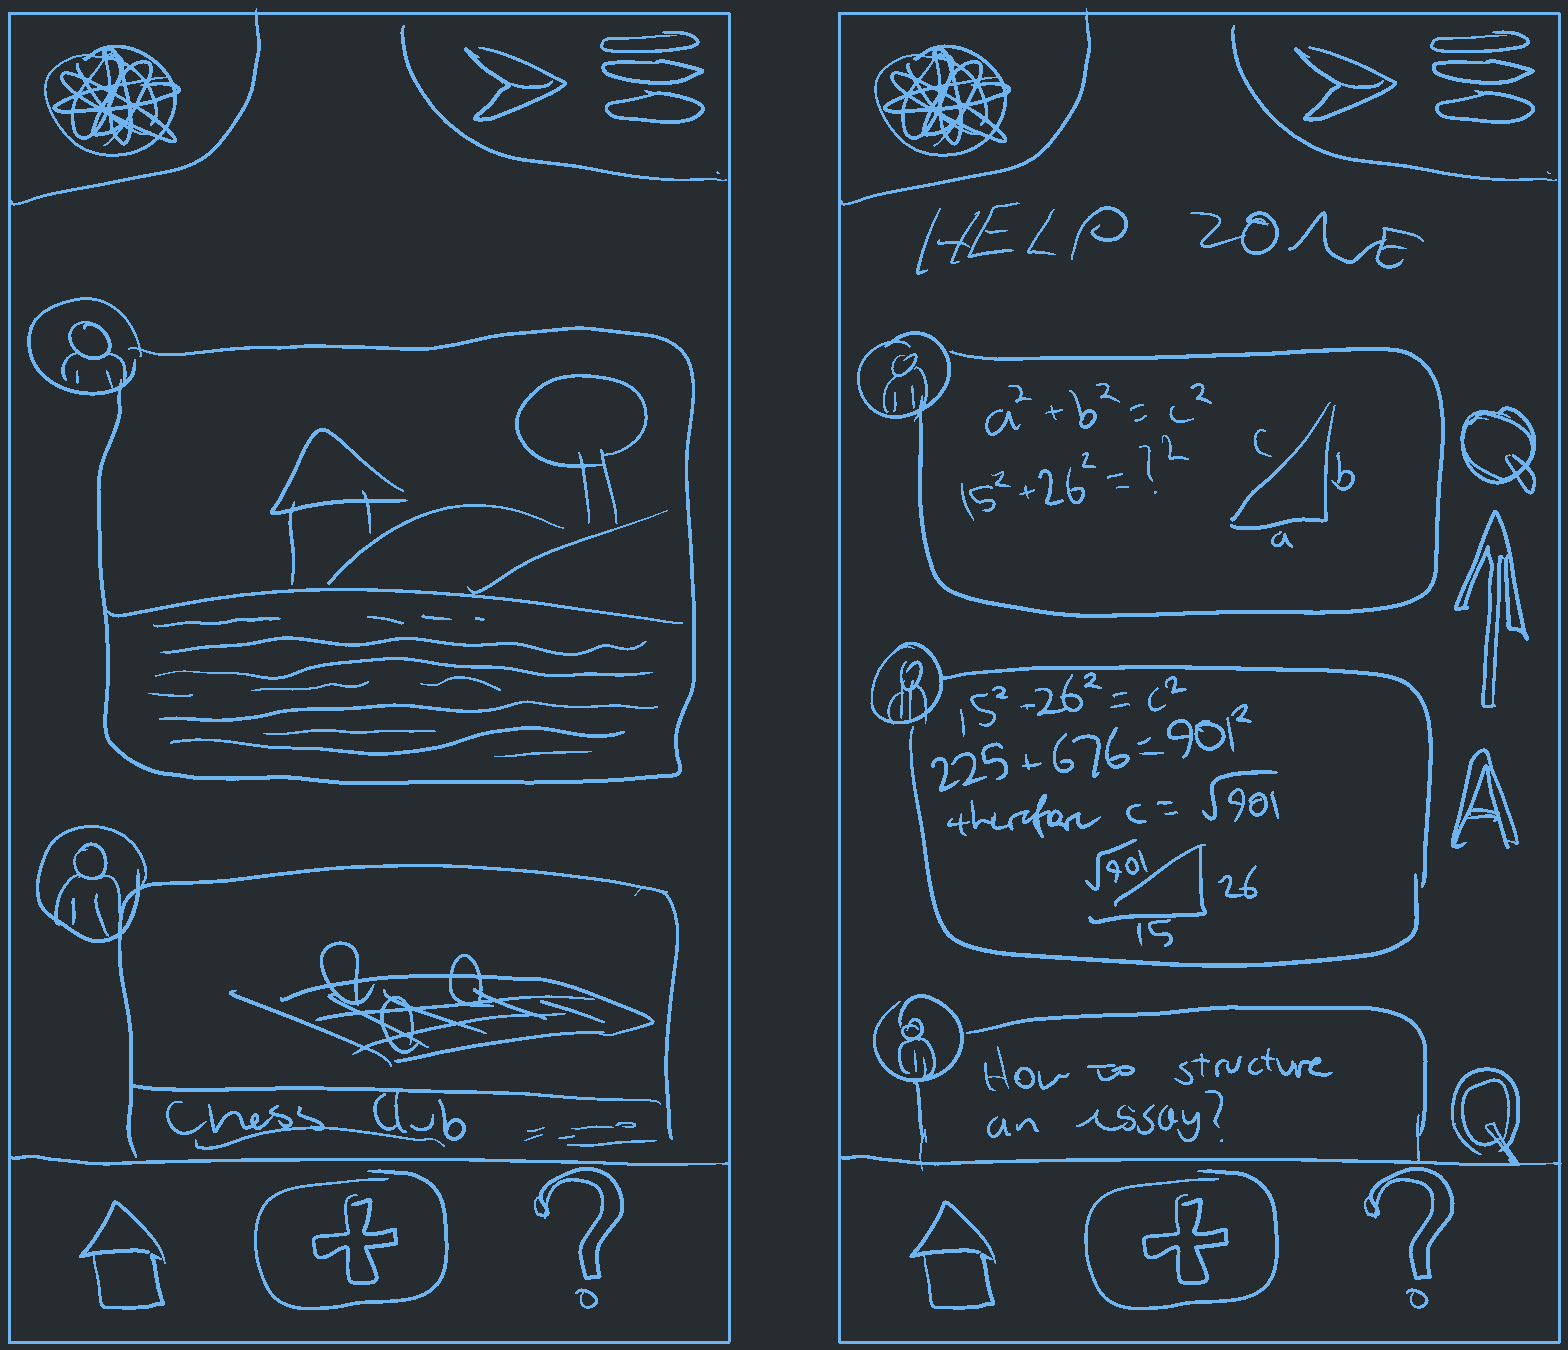 Chess Club
HELP ZONE
a² + b² = c²
15² + 26² = ?²
c
b
a
Q
15² - 26² = c²
225 + 676 = 901²
therefore c = √901
A
√901
26
15
How to structure
an essay?
Q
?
?